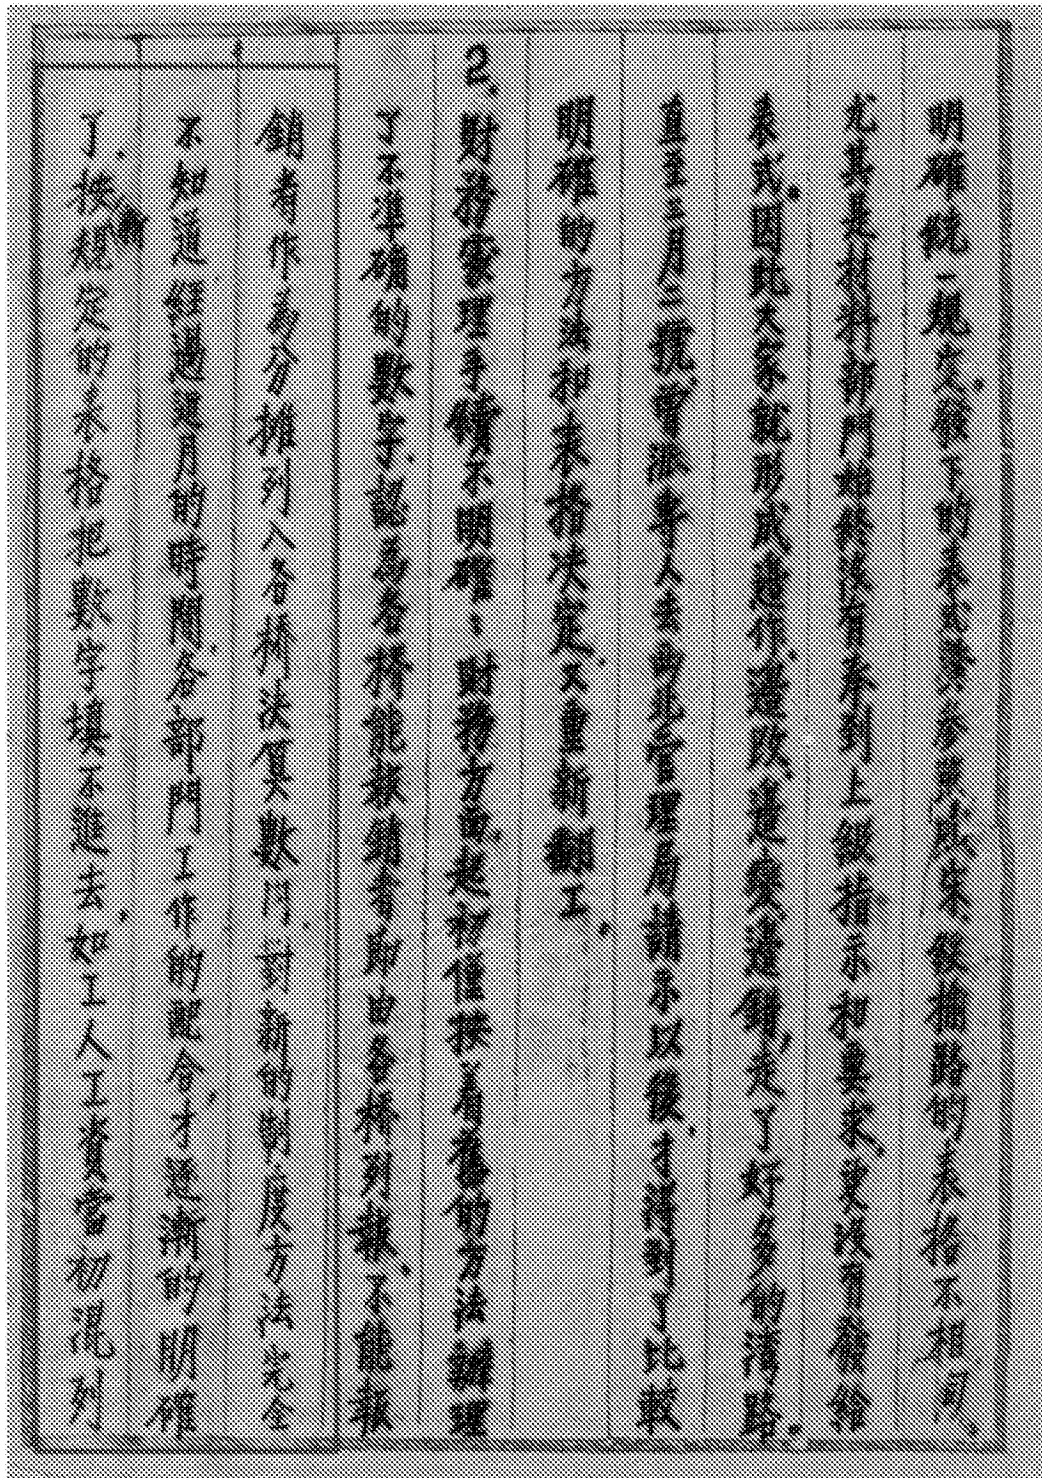 明確統一規定、發下的表式勢多與成本假捕路的表格不相同、
尤其是材料部門始終沒有奉到上級指示和要求、更沒有發給
表式、因此大家就形成邊作、邊改、邊變、邊錯、走了好多的灣路、
直至三月二號、曾派專人去向北管理局請示以後、才得到了比較
明確的方法和表格決定、又重新翻工、
2、財務處理手續不明確：財務方面、起初僅按着舊的方法辦理
了不準确的數字、認為各橋能報銷者即由各橋列報、不能報
銷者作為分攤列入各橋決算數內、對新的制度方法完全
不知道、經過退月的時間、各部門工作的配合、才逐漸的明確
了、按新規定的表格把數字填不進去、如工人工資當初混列